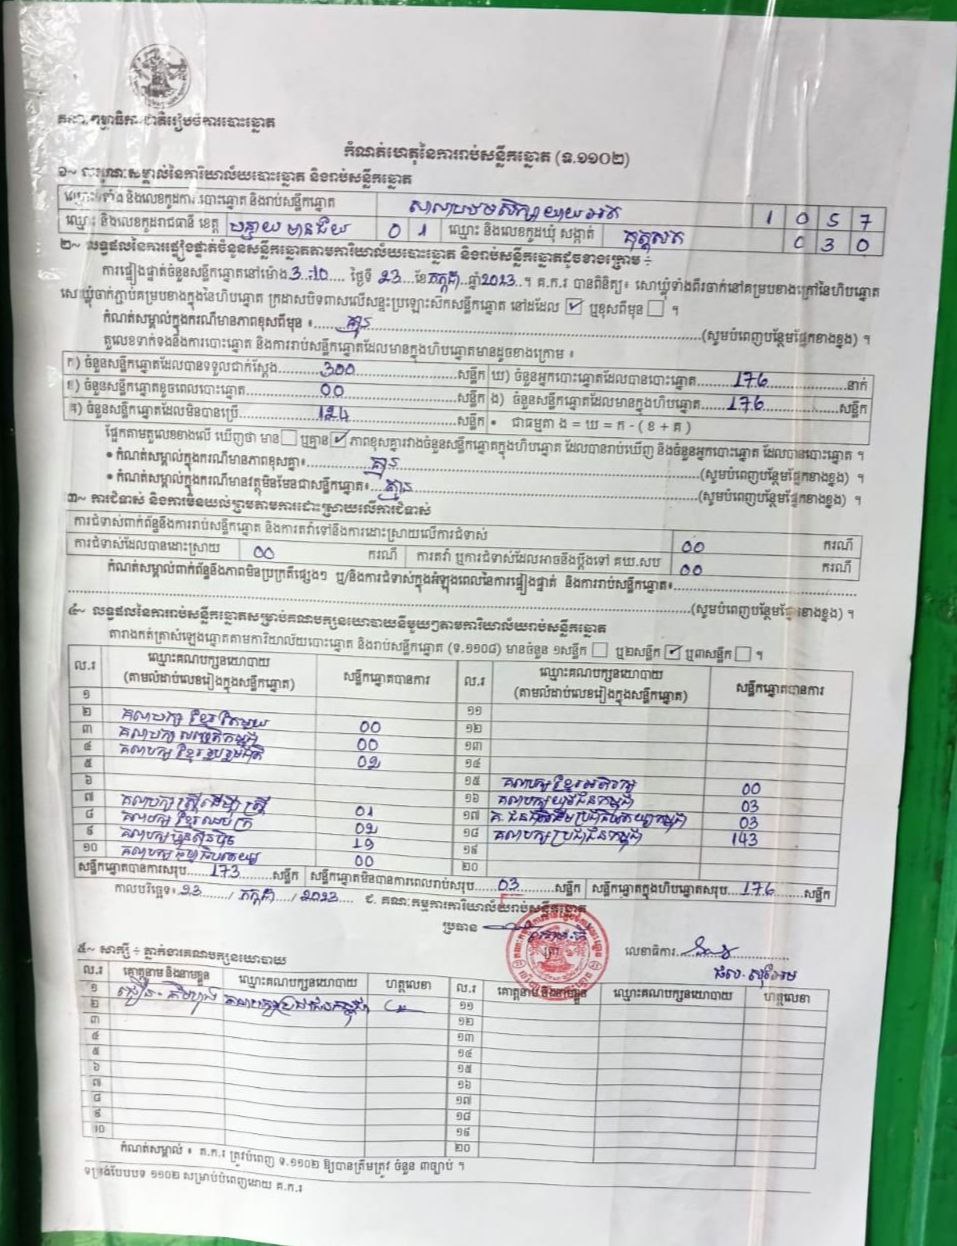 គណៈកម្មាធិការជាតិរៀបចំការបោះឆ្នោត
កំណត់ហេតុនៃការរាប់សន្លឹកឆ្នោត (ទ.១១០២)
១~ លក្ខណៈសម្គាល់នៃការិយាល័យបោះឆ្នោត និងរាប់សន្លឹកឆ្នោត
ឈ្មោះទីតាំង និងលេខកូដការ.បោះឆ្នោត និងរាប់សន្លឹកឆ្នោត 1 0 5 7
ឈ្មោះ និងលេខកូដរាជធានី ខេត្ត បន្ទាយ មានជ័យ 0 1 ឈ្មោះ និងលេខកូដឃុំ សង្កាត់ គុត្តសត 0 3 0
២~ លទ្ធផលនៃការផ្ទៀងផ្ទាត់ចំនួនសន្លឹកឆ្នោតតាមការិយាល័យបោះឆ្នោត និងរាប់សន្លឹកឆ្នោតដូចខាងក្រោម ÷
ការផ្ទៀងផ្ទាត់ចំនួនសន្លឹកឆ្នោតនៅម៉ោង 3:10 ថ្ងៃទី 23 ខែ កក្កដា ឆ្នាំ 2023 ។ គ.ក.រ បានពិនិត្យ៖ សោឃ្លុំទាំងពីរចាក់នៅគម្របខាងក្រៅនៃហិបឆ្នោត
សោឃ្លុំចាក់ភ្ជាប់គម្របខាងក្នុងនៃហិបឆ្នោត ក្រដាសបិទពាសលើសន្ទះប្រឡោះស៊ីកសន្លឹកឆ្នោត នៅដដែល ☑ ឬខុសពីមុន ☐ ។
កំណត់សម្គាល់ក្នុងករណីមានភាពខុសពីមុន ៖ គ្មាន (សូមបំពេញបន្ថែមផ្នែកខាងខ្នង) ។
តួលេខទាក់ទងនឹងការបោះឆ្នោត និងការរាប់សន្លឹកឆ្នោតដែលមានក្នុងហិបឆ្នោតមានដូចខាងក្រោម ៖
ក) ចំនួនសន្លឹកឆ្នោតដែលបានទទួលជាក់ស្តែង 300 សន្លឹក ឃ) ចំនួនអ្នកបោះឆ្នោតដែលបានបោះឆ្នោត 176 នាក់
ខ) ចំនួនសន្លឹកឆ្នោតខូចពេលបោះឆ្នោត 00 សន្លឹក ង) ចំនួនសន្លឹកឆ្នោតដែលមានក្នុងហិបឆ្នោត 176 សន្លឹក
គ) ចំនួនសន្លឹកឆ្នោតដែលមិនបានប្រើ 124 សន្លឹក • ជាធម្មតា ង = ឃ = ក - ( ខ + គ )
ផ្អែកតាមតួលេខខាងលើ ឃើញថា មាន ☐ ឬគ្មាន ☑ ភាពខុសគ្នារវាងចំនួនសន្លឹកឆ្នោតក្នុងហិបឆ្នោត ដែលបានរាប់ឃើញ និងចំនួនអ្នកបោះឆ្នោត ដែលបានបោះឆ្នោត ។
• កំណត់សម្គាល់ក្នុងករណីមានភាពខុសគ្នា៖ គ្មាន (សូមបំពេញបន្ថែមផ្នែកខាងខ្នង) ។
• កំណត់សម្គាល់ក្នុងករណីមានវត្ថុមិនមែនជាសន្លឹកឆ្នោត៖ គ្មាន (សូមបំពេញបន្ថែមផ្នែកខាងខ្នង) ។
៣~ ការជំទាស់ និងការមិនយល់ព្រមតាមការដោះស្រាយលើការជំទាស់
ការជំទាស់ពាក់ព័ន្ធនឹងការរាប់សន្លឹកឆ្នោត និងការតវ៉ាទៅនឹងការដោះស្រាយលើការជំទាស់ 00 ករណី
ការជំទាស់ដែលបានដោះស្រាយ 00 ករណី ការតវ៉ា ឬការជំទាស់ដែលអាចនឹងប្តឹងទៅ គឃ.សប 00 ករណី
កំណត់សម្គាល់ពាក់ព័ន្ធនឹងភាពមិនប្រក្រតីផ្សេងៗ ឬ/និងការជំទាស់ក្នុងអំឡុងពេលនៃការផ្ទៀងផ្ទាត់ និងការរាប់សន្លឹកឆ្នោត៖
(សូមបំពេញបន្ថែមផ្នែកខាងខ្នង) ។
៤~ លទ្ធផលនៃការរាប់សន្លឹកឆ្នោតសម្រាប់គណបក្សនយោបាយនីមួយៗតាមការិយាល័យរាប់សន្លឹកឆ្នោត
តារាងកត់ត្រាសំឡេងឆ្នោតតាមការិយាល័យបោះឆ្នោត និងរាប់សន្លឹកឆ្នោត (ទ.១១០៨) មានចំនួន ១សន្លឹក ☐ ឬ២សន្លឹក ☑ ឬ៣សន្លឹក ☐ ។
ល.រ ឈ្មោះគណបក្សនយោបាយ (តាមលំដាប់លេខរៀងក្នុងសន្លឹកឆ្នោត) សន្លឹកឆ្នោតបានការ ល.រ ឈ្មោះគណបក្សនយោបាយ (តាមលំដាប់លេខរៀងក្នុងសន្លឹកឆ្នោត) សន្លឹកឆ្នោតបានការ
១ ១១
២ គណបក្ស ខ្មែរតែមួយ 00 ១២
៣ គណបក្ស សញ្ជាតិកម្ពុជា 00 ១៣
៤ គណបក្ស ខ្មែររួបរួមជាតិ 02 ១៤
៥ ១៥ គណបក្សខ្មែរអភិរក្ស 00
៦ ១៦ គណបក្សយុវជនកម្ពុជា 03
៧ គណបក្សស្ត្រីដើម្បីស្ត្រី 01 ១៧ គ. ជនជាតិដើមប្រជាធិបតេយ្យកម្ពុជា 03
៨ គណបក្ស ខ្មែរឈប់ក្រ 02 ១៨ គណបក្សប្រជាជនកម្ពុជា 143
៩ គណបក្សហ៊្វុនស៊ិនប៉ិច 19 ១៩
១០ គណបក្ស ធម្មាធិបតេយ្យ 00 ២០
សន្លឹកឆ្នោតបានការសរុប 173 សន្លឹក សន្លឹកឆ្នោតមិនបានការពេលរាប់សរុប 03 សន្លឹក សន្លឹកឆ្នោតក្នុងហិបឆ្នោតសរុប 176 សន្លឹក
កាលបរិច្ឆេទ៖ 23 / កក្កដា / 2023 ជ. គណៈកម្មការការិយាល័យរាប់សន្លឹកឆ្នោត
ប្រធាន លេខាធិការ
៥~ សាក្សី ÷ ភ្នាក់ងារគណបក្សនយោបាយ
ល.រ គោត្តនាម និងនាមខ្លួន ឈ្មោះគណបក្សនយោបាយ ហត្ថលេខា ល.រ គោត្តនាម និងនាមខ្លួន ឈ្មោះគណបក្សនយោបាយ ហត្ថលេខា
១ គណបក្សប្រជាជនកម្ពុជា ១១
២ ១២
៣ ១៣
៤ ១៤
៥ ១៥
៦ ១៦
៧ ១៧
៨ ១៨
៩ ១៩
១០ ២០
កំណត់សម្គាល់ ៖ គ.ក.រ ត្រូវបំពេញ ទ.១១០២ ឱ្យបានត្រឹមត្រូវ ចំនួន ៣ច្បាប់ ។
ទម្រង់បែបបទ ១១០២ សម្រាប់បំពេញដោយ គ.ក.រ